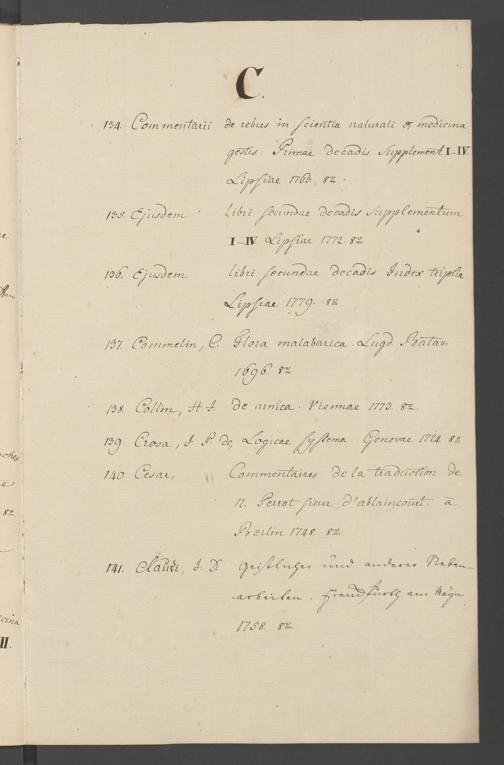 C.
134. Commentarii de rebus in scientia naturali & medicina
gestis. Primae decadis Supplement. I-IV.
Lipsiae 1763. 8º.
135. Ejusdem libri secundae decadis Supplementum
I-IV. Lipsiae 1772. 8º
136. Ejusdem libri secundae decadis Index tripla
Lipsiae 1779. 8º
137. Commelin, C. Flora malabarica. Lugd. Batav.
1696. 8º
138. Collin, H. J. de arnica. Viennae 1773. 8º.
139 Crosa, J. P. de, Logicae systema. Genevae 1724. 8º
140. Cesar, Commentaires de la traduction de
N. Perrot sieur d'ablaincourt. à
1748. 8º
141. J. D. geistliches und anderer Neben-
arbeiten. Franckfurth am Mayn
1758. 8º